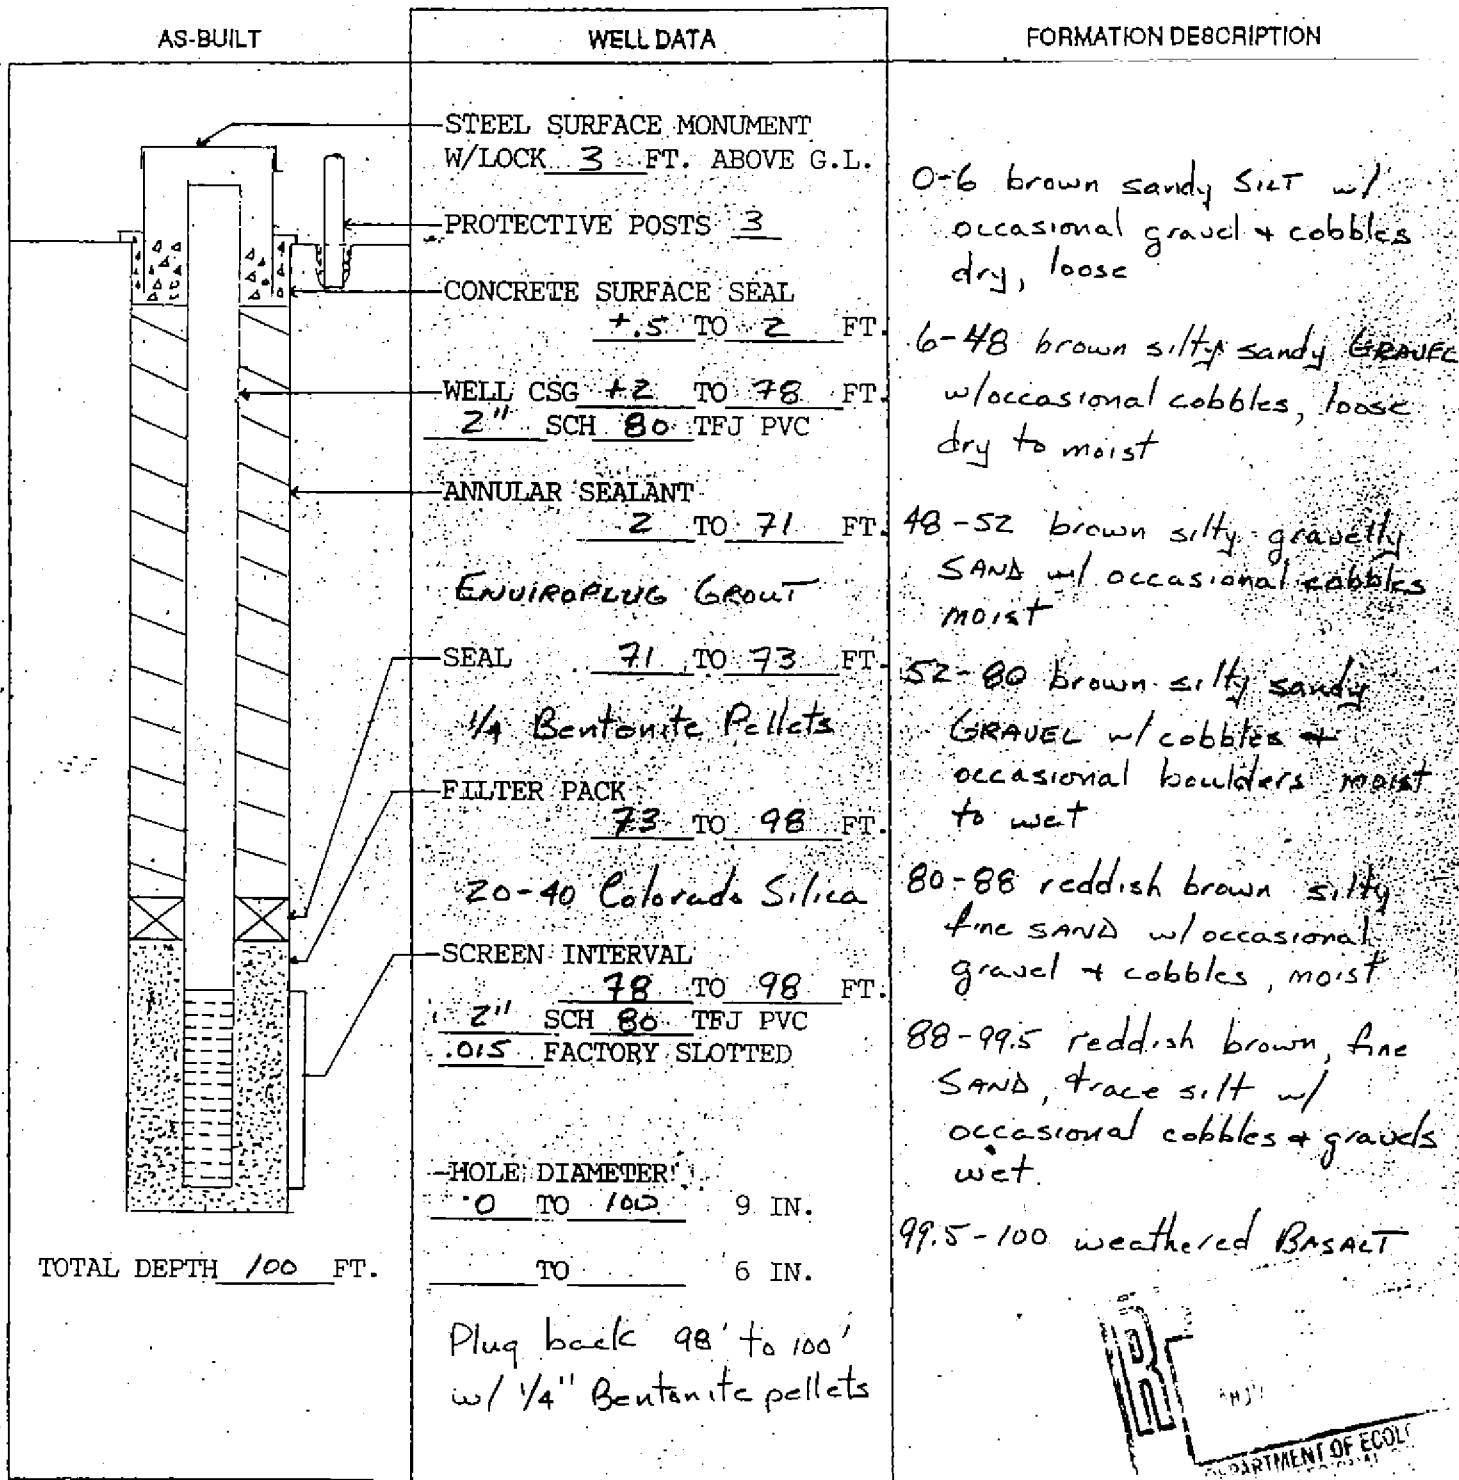 AS-BUILT
WELL DATA
FORMATION DESCRIPTION
STEEL SURFACE MONUMENT
W/LOCK 3 FT. ABOVE G.L.
PROTECTIVE POSTS 3
CONCRETE SURFACE SEAL
+.5 TO 2 FT.
WELL CSG +2 TO 78 FT.
2" SCH 80 TFJ PVC
ANNULAR SEALANT
2 TO 71 FT.
ENVIROPLUG GROUT
SEAL 71 TO 73 FT.
1/4 Bentonite Pellets
FILTER PACK
73 TO 98 FT.
20-40 Colorado Silica
SCREEN INTERVAL
78 TO 98 FT.
2" SCH 80 TFJ PVC
.015 FACTORY SLOTTED
HOLE DIAMETER
0 TO 100 9 IN.
TO 6 IN.
Plug back 98' to 100'
w/ 1/4" Bentonite pellets
TOTAL DEPTH 100 FT.
0-6 brown sandy SILT w/
occasional gravel + cobbles
dry, loose
6-48 brown silty sandy GRAVEL
w/occasional cobbles, loose
dry to moist
48-52 brown silty gravelly
SAND w/ occasional cobbles
moist
52-80 brown silty sandy
GRAVEL w/ cobbles +
occasional boulders moist
to wet
80-88 reddish brown silty
fine SAND w/occasional
gravel + cobbles, moist
88-99.5 reddish brown, fine
SAND, trace silt w/
occasional cobbles + gravels
wet.
99.5-100 weathered BASALT
DEPARTMENT OF ECOL